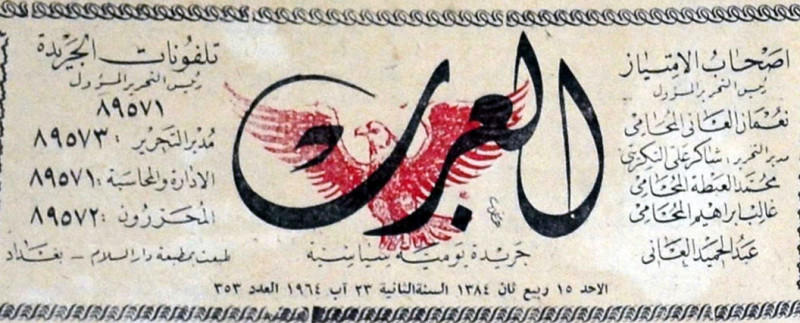 اصحاب الامتياز
رئيس التحرير المسؤول
نعمان العاني المحامي
مدير التحرير : شاكر علي التكريتي
محمد العبطة المحامي
غالب ابراهيم المحامي
عبد الحميد العاني
العرب
جريدة يومية سياسية
تلفونات الجريدة
رئيس التحرير المسؤول
٨٩٥٧١
مدير التحرير : ٨٩٥٧٣
الادارة والمحاسبة : ٨٩٥٧١
المحررون : ٨٩٥٧٢
طبعت بمطبعة دار السلام - بغداد
الاحد ١٥ ربيع ثان ١٣٨٤ السنة الثانية ٢٣ آب ١٩٦٤ العدد ٣٥٣